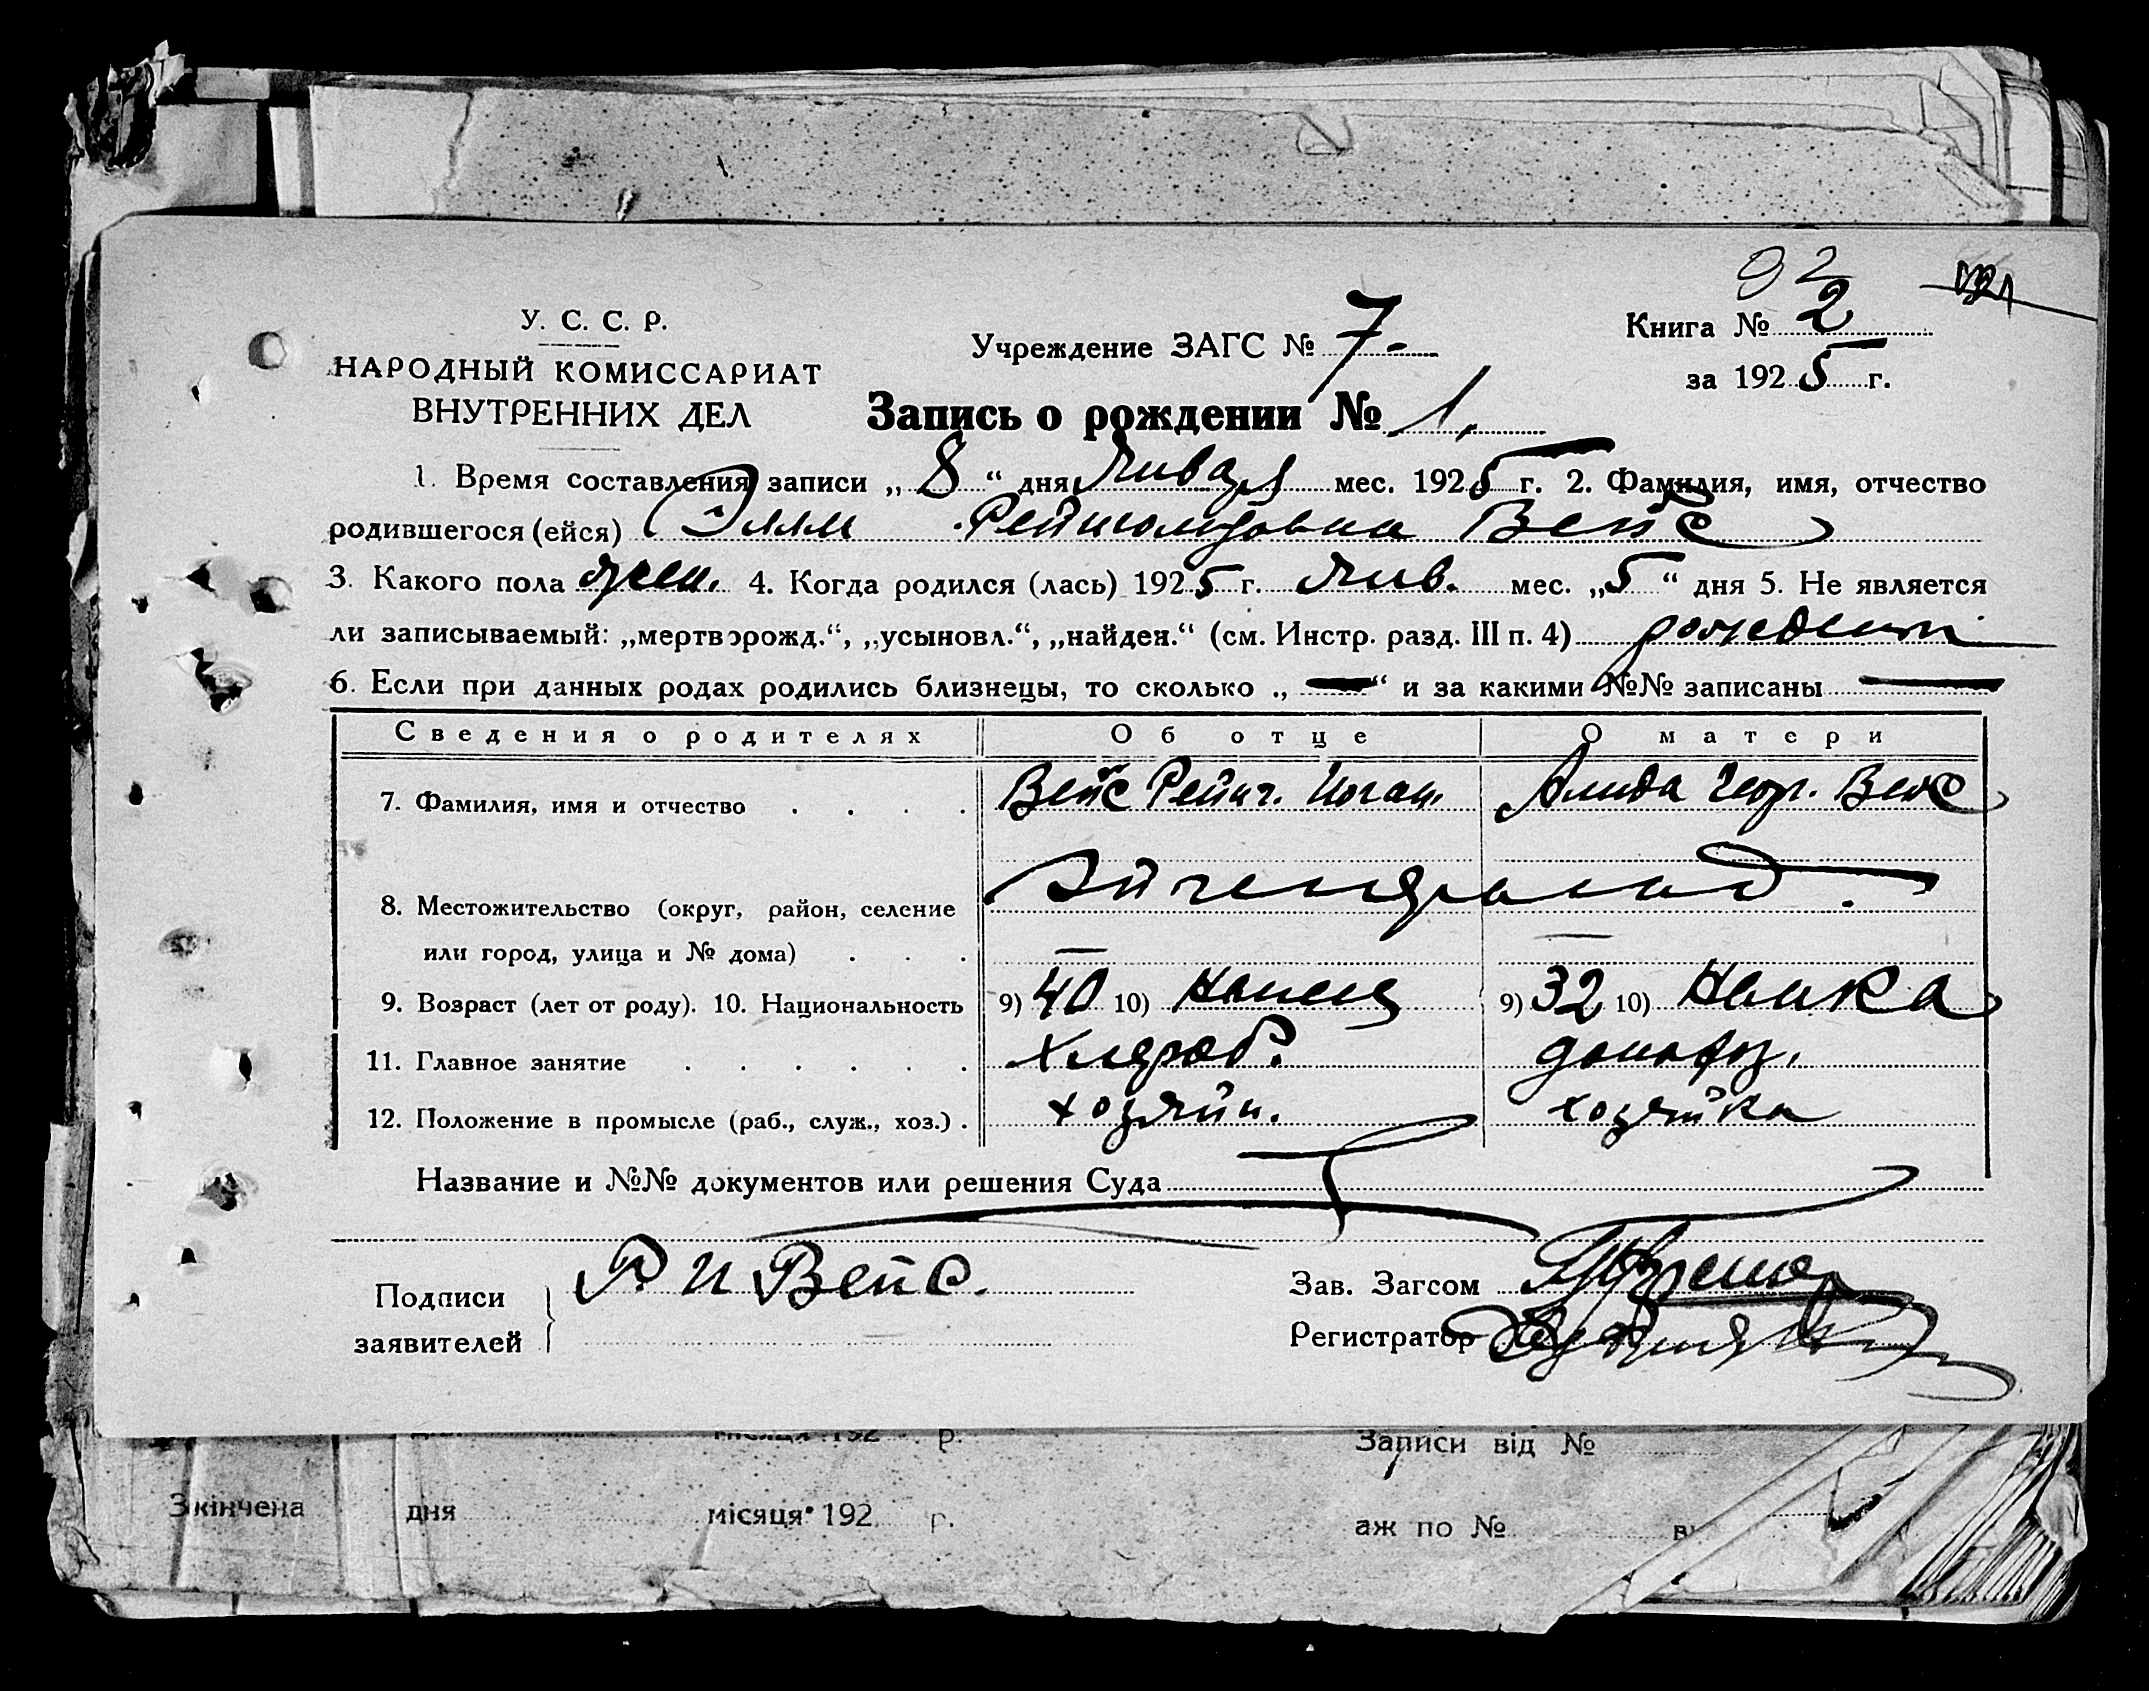 92
У. С. С. Р.
НАРОДНЫЙ КОМИССАРИАТ
ВНУТРЕННИХ ДЕЛ
Учреждение ЗАГС № 7-
Книга № 2
за 1925 г.
Запись о рождении № 1.
1. Время составления записи „8“ дня Января мес. 1925 г. 2. Фамилия, имя, отчество
родившегося (ейся) Элли Рейнгольдовна Вейс
3. Какого пола жен. 4. Когда родился (лась) 1925 г. Янв. мес. „5“ дня 5. Не является
ли записываемый: „мертворожд.“, „усыновл.“, „найден.“ (см. Инстр. разд. III п. 4)
6. Если при данных родах родились близнецы, то сколько „—“ и за какими №№ записаны —
Сведения о родителях Об отце О матери
7. Фамилия, имя и отчество . . . . Вейс Рейнг. Иоган. Алида Георг. Вейс
8. Местожительство (округ, район, селение Эйгенфельд.
или город, улица и № дома) . . . — —
9. Возраст (лет от роду). 10. Национальность 9) 40 10) Немец 9) 32 10) Немка
11. Главное занятие . . . . . . Хлебороб. домохоз.
12. Положение в промысле (раб., служ., хоз.) . хозяин. хозяйка
Название и №№ документов или решения Суда
Подписи
заявителей
Р И Вейс.
Зав. Загсом
Регистратор
місяця 192 р.
Записи від №
Зкінчена дня місяця 192 р.
аж по №